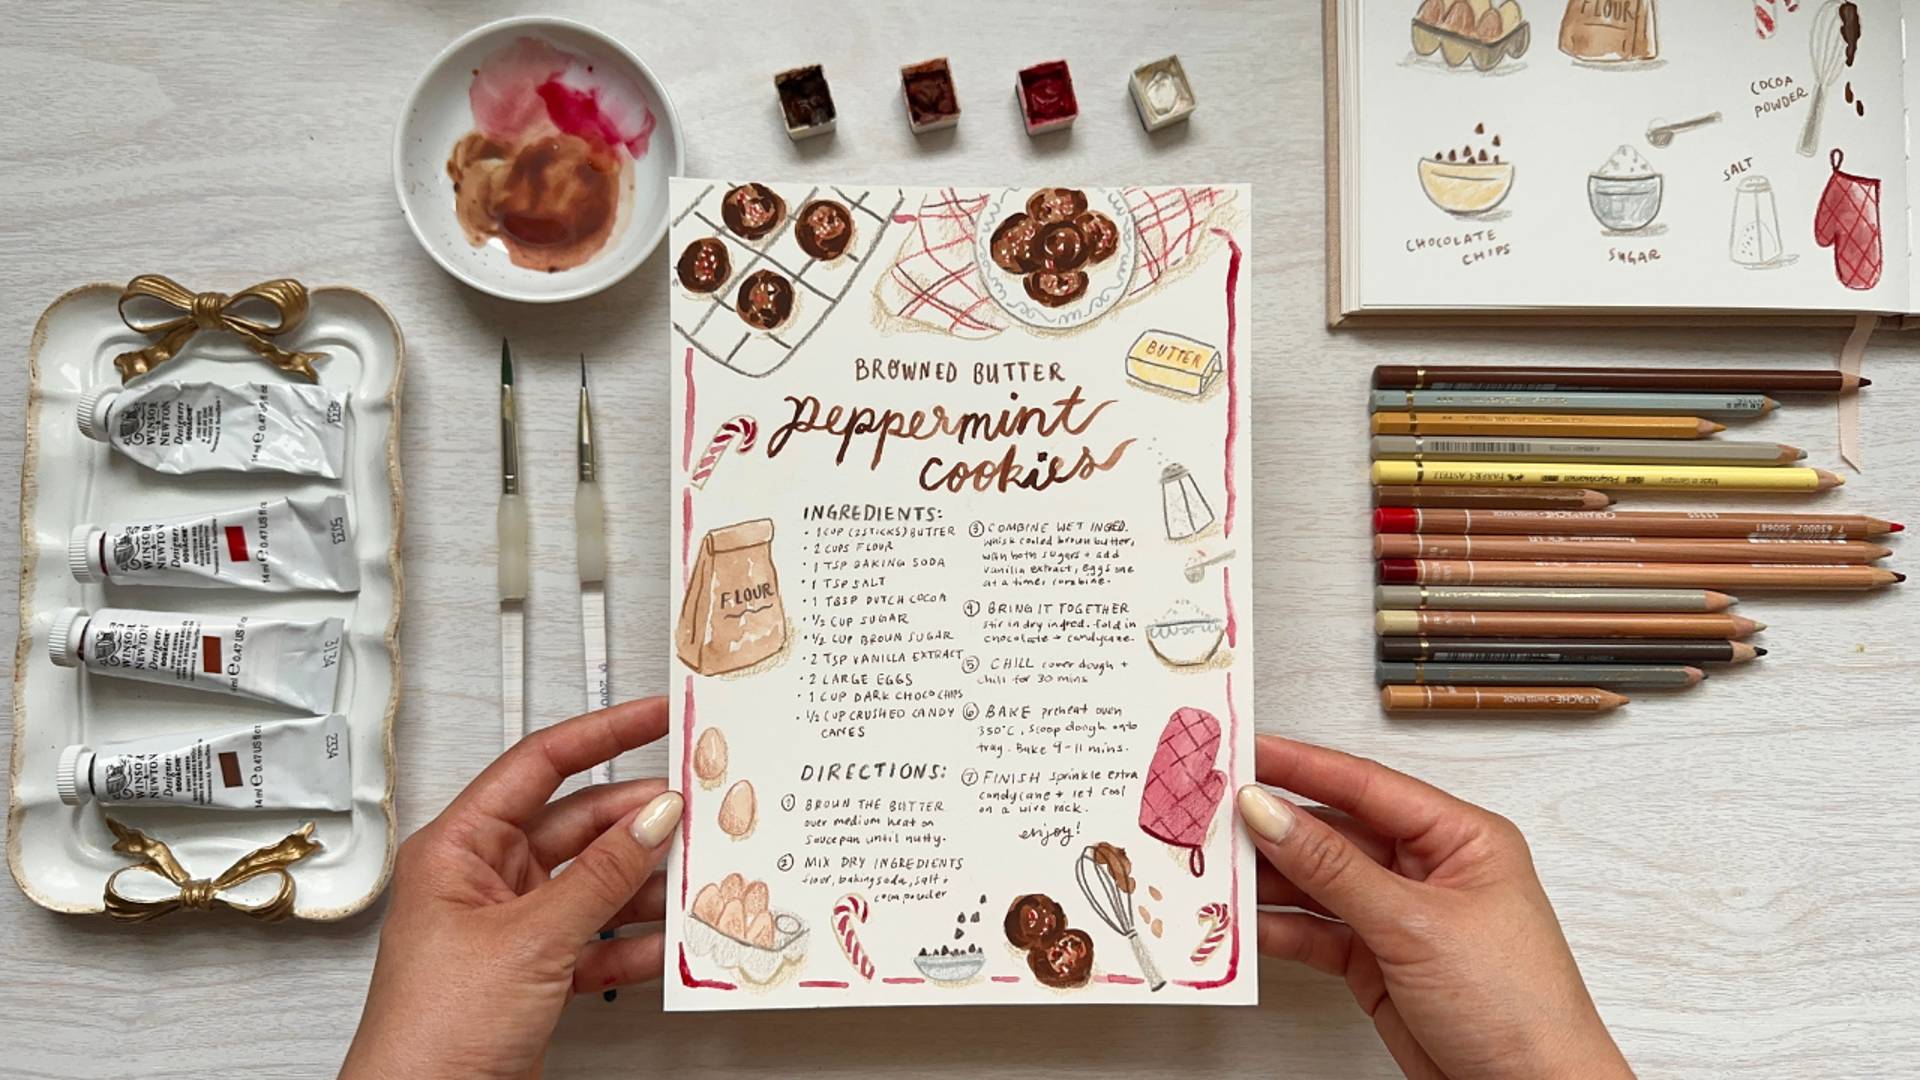 FLOUR
COCOA
POWDER
CHOCOLATE
CHIPS
SUGAR
SALT
WINSOR
& NEWTON
Designers
GOUACHE
14 ml e 0.47 US fl oz
WINSOR
& NEWTON
Designers
GOUACHE
14 ml e 0.47 US fl oz
WINSOR
& NEWTON
Designers
GOUACHE
14 ml e 0.47 US fl oz
WINSOR
& NEWTON
Designers
GOUACHE
14 ml e 0.47 US fl oz
BROWNED BUTTER
peppermint
cookies
BUTTER
FLOUR
INGREDIENTS:
• 1 CUP (2 STICKS) BUTTER
• 2 CUPS FLOUR
• 1 TSP BAKING SODA
• 1 TSP SALT
• 1 TBSP DUTCH COCOA
• ½ CUP SUGAR
• ½ CUP BROWN SUGAR
• 2 TSP VANILLA EXTRACT
• 2 LARGE EGGS
• 1 CUP DARK CHOCO CHIPS
• ½ CUP CRUSHED CANDY
CANES
DIRECTIONS:
① BROWN THE BUTTER
over medium heat on
saucepan until nutty.
② MIX DRY INGREDIENTS
flour, baking soda, salt +
cocoa powder
③ COMBINE WET INGRED.
whisk cooled brown butter,
with both sugars + add
vanilla extract, eggs one
at a time, combine.
④ BRING IT TOGETHER
stir in dry ingred. fold in
chocolate + candycane.
⑤ CHILL cover dough +
chill for 30 mins
⑥ BAKE preheat oven
350°C, scoop dough onto
tray. Bake 9-11 mins.
⑦ FINISH sprinkle extra
candycane + let cool
on a wire rack.
enjoy!
FABER-CASTELL
Polychromos
Made in Germany